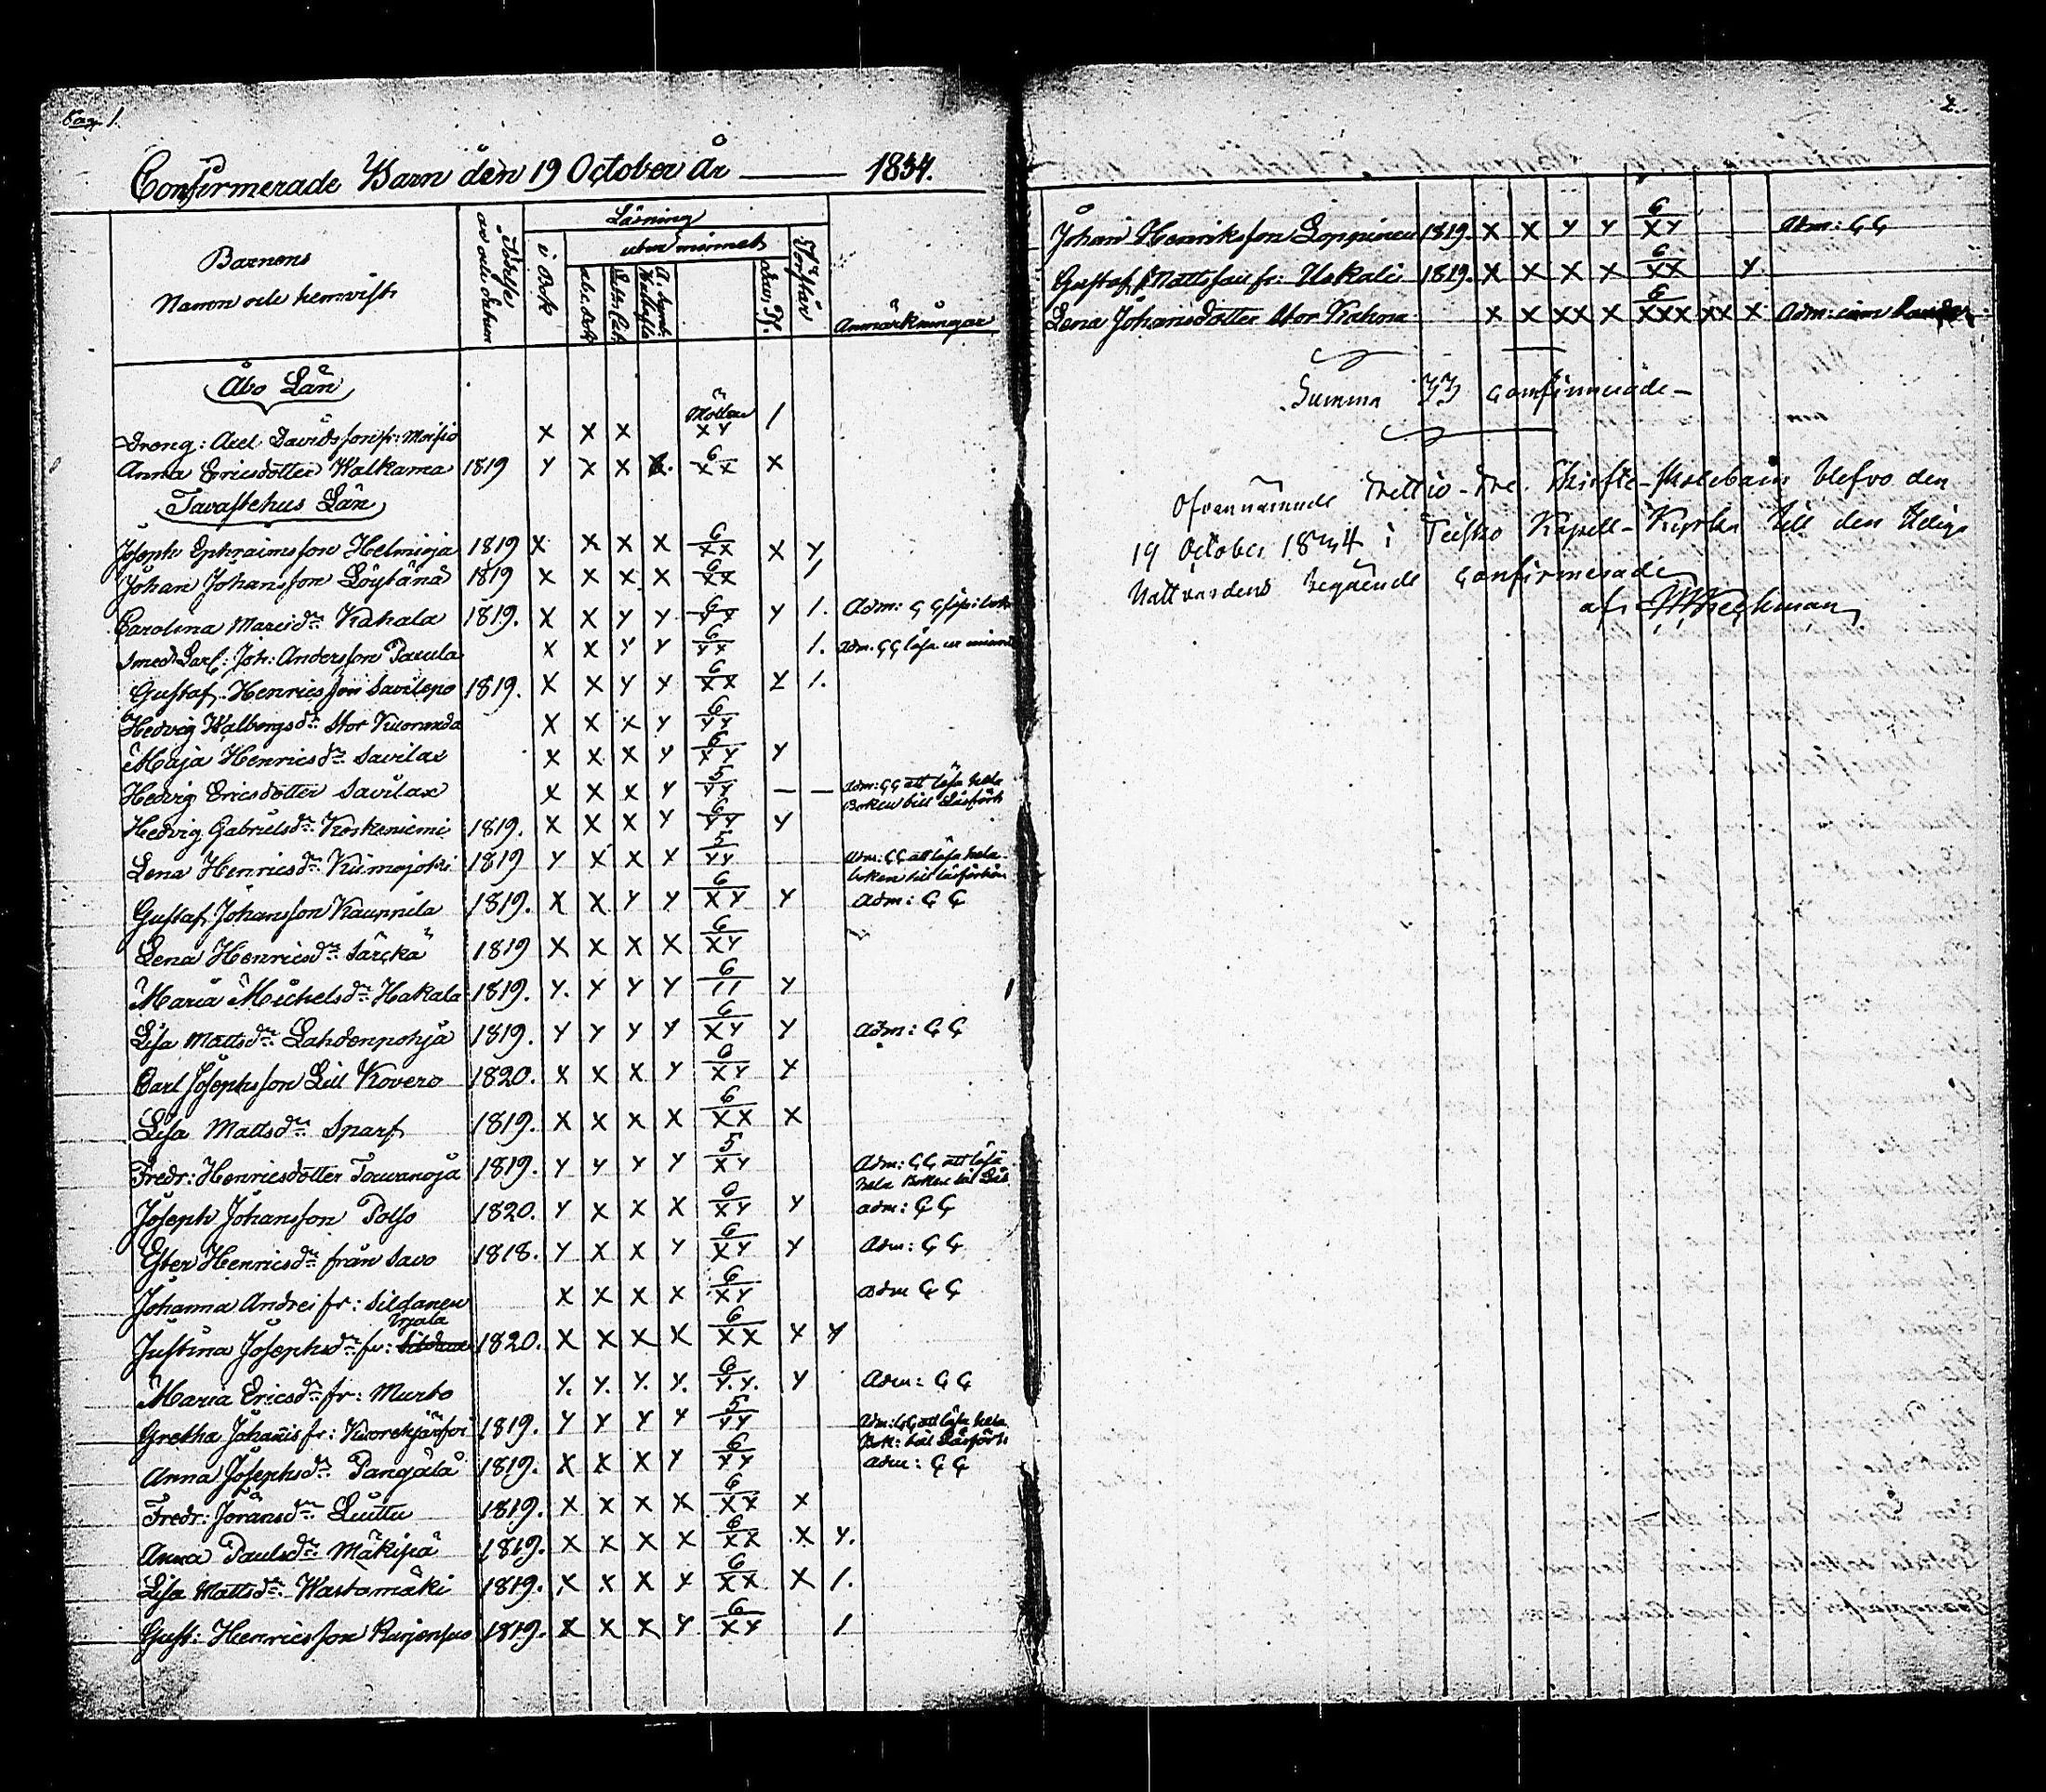 Pag 1.
Confirmerade Barn den 19 October År 1834.
Barnens
Namn och hemvist
Födelse
år och datum
Läsning
i Bok
utan minnet
abc. bok
Luth. Cat.
Dav. Ps.
Förstår
Anmärkningar
Åbo Län
Möller
Dreng: Axel Davidsson fr: Moisio X X X XY /
Anna Ericsdotter Walkama 1819 Y X X 6 XX X
Tavastehus Län
Joseph Ephraimsson Helminja 1819 X X X X 6 XX X Y
Johan Johansson Löytänä 1819 X X X X 6 XX /
Carolina Marcidr Kahala 1819. X X Y Y 6 YX Y /. Adm: G G
Smed: Joh: Andersson Paxula X X Y Y 6 YY /. Adm. G G läsa ur
Gustaf Henricsson Savilepo 1819. X X Y Y 6 XX Y /.
Hedvig Walborgsdr Stor Kuoranda X X X Y 6 YY
Maja Henricsdr Savilax X X X Y 6 XY Y
Hedvig Ericsdotter Savilax X X X Y 5 YY — — Adm: G G att läsa hela
Boken till Läsförh
Hedvig Gabrielsdr Koskeniemi 1819. X X X Y 6 YY Y
Lena Henricsdr Kiimajoki 1819 Y X X X 5 YY Adm: G G att läsa hela
boken till läsförhör
Gustaf Johansson Kauppila 1819. X X Y Y 6 XY Y Adm: G G
Lena Henricsdr Särckä 1819 X X X X 6 XY
Maria Michelsdr Hakala 1819. Y. Y Y Y 6 // Y
Lisa Mattsdr Lahdenpohja 1819. Y Y Y Y 6 XY Y Adm: G G
Carl Josephsson Lill Kovero 1820. X X X Y 6 XY Y
Lisa Mattsdr Sparf 1819. X X X X 6 XX X
Fredr: Henricsdotter Touvanoja 1819. Y Y Y Y 5 XY Adm: G G att läsa
hela Boken till Läs
Joseph Johansson Polso 1820. Y X X X 6 XY Y adm: G G
Ester Henricsdr från Savo 1818. Y X X Y 6 XY Y Adm: G G
Johanna Andrei fr: Sildanen X X X X 6 XY adm G G
Urjala
Justina Josephsdr fr: 1820. X X X X 6 XX Y Y
Maria Ericsdr fr: Murto Y. Y. Y. Y. 6 Y.Y. Y Adm: G G
Gretha Johanis fr: Kuorekjärfvi 1819. Y Y Y Y 5 YY Adm: G G att läsa hela
Bok: till Läsförh
Anna Josephsdr Pangälä 1819. X X X Y 6 YY adm: G G
Fredr: Joransdr Luuttu 1819. X X X X 6 XX X
Anna Paulsdr Mäkipä 1819. X X X X 6 XX X Y.
Lisa Mattsdr Wastamäki 1819. X X X Y 6 XX X /.
Gust: Henricsson Kurjensuo 1819. X X X Y 6 XY /
2.
Johan Henriksson Loppinen 1819. X X Y Y 6 XY Adm: G G
Gustaf Mattsson fr: Uskali 1819. X X X X 6 XX Y
Lena Johansdotter Stor Kahma X X XX X 6 XXX XX X Adm:
Summa 33 confirmerade —
Ofvannämnde Trettio-Tre Skrifte-Skolebarn blefvo den
19 October 1834 i Teisko Kapell-Kyrka till den Heliga
Nattvardens begående confirmerade
af